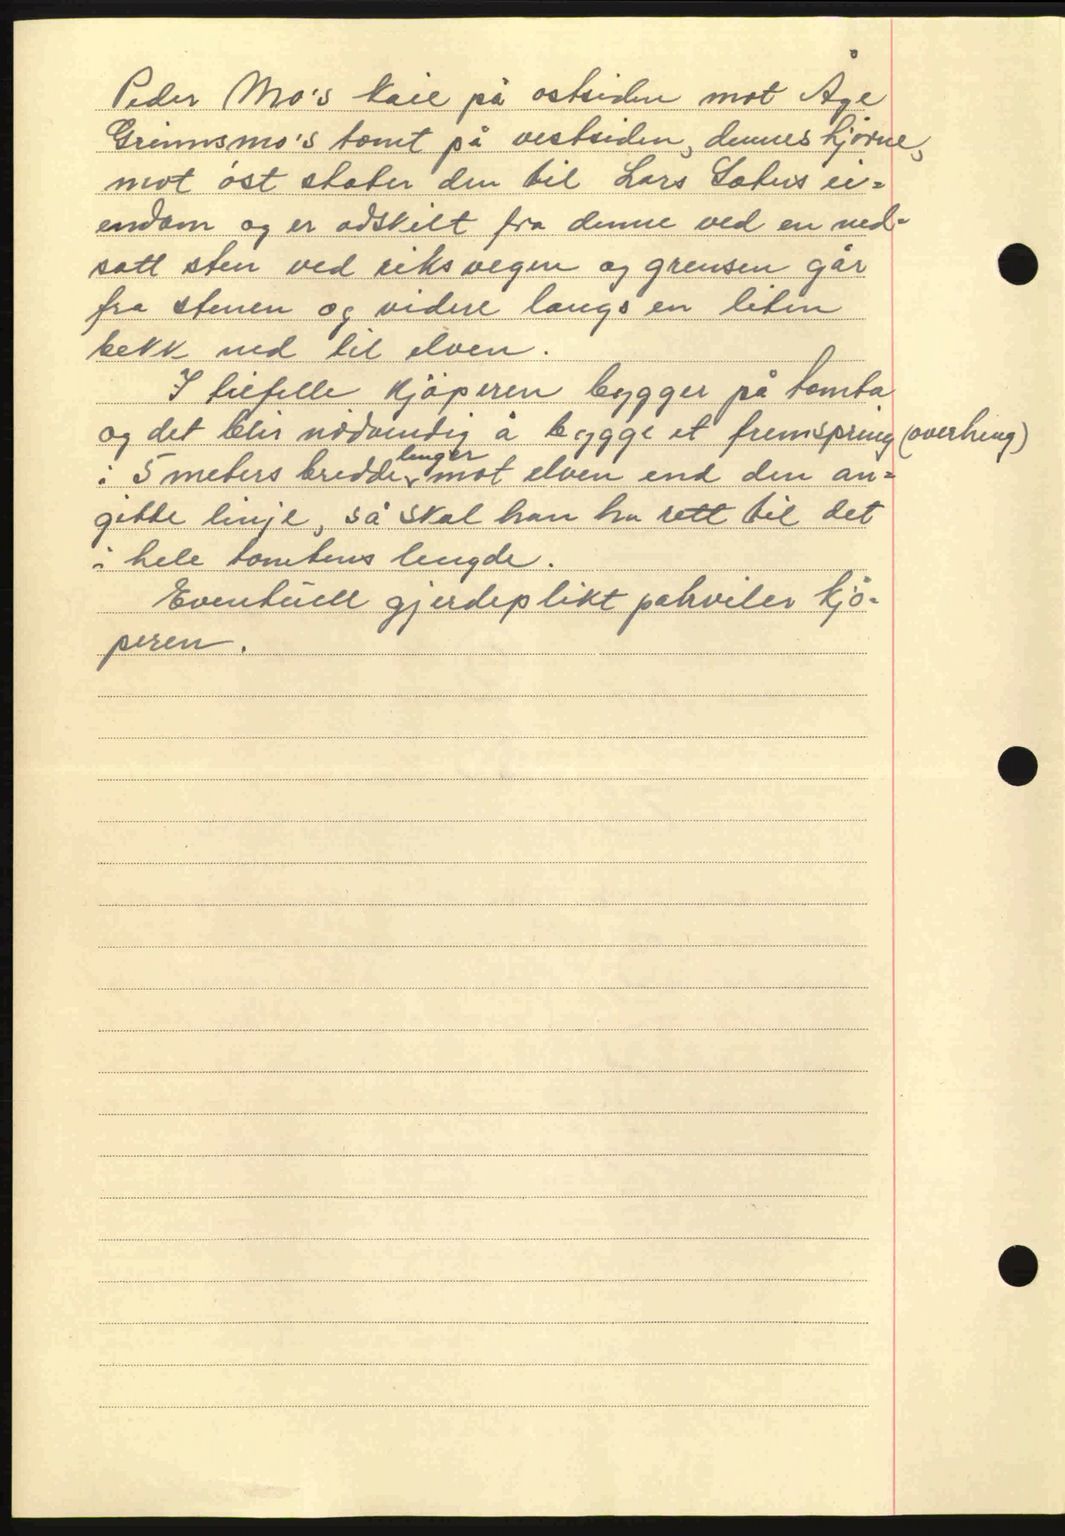 Peder Mo's kaie på ostsiden mot Åge
Grimsmo's tomt på vestsiden, dennes hjørne,
mot øst støter den til Lars Sæters ei=
endom og er adskilt fra denne ved en ned=
satt sten ved riksvegen og grensen går
fra stenen og videre langs en liten
bekk ned til elven.
I tilfelle kjöperen bygger på tomta
og det blir nödvendig å bygge et fremspring (overheng)
i 5 meters bredde lenger mot elven end den an=
gitte linje, så skal han ha rett til det
i hele tomtens lengde.
Eventuell gjerdeplikt pahviler kjö-
peren.